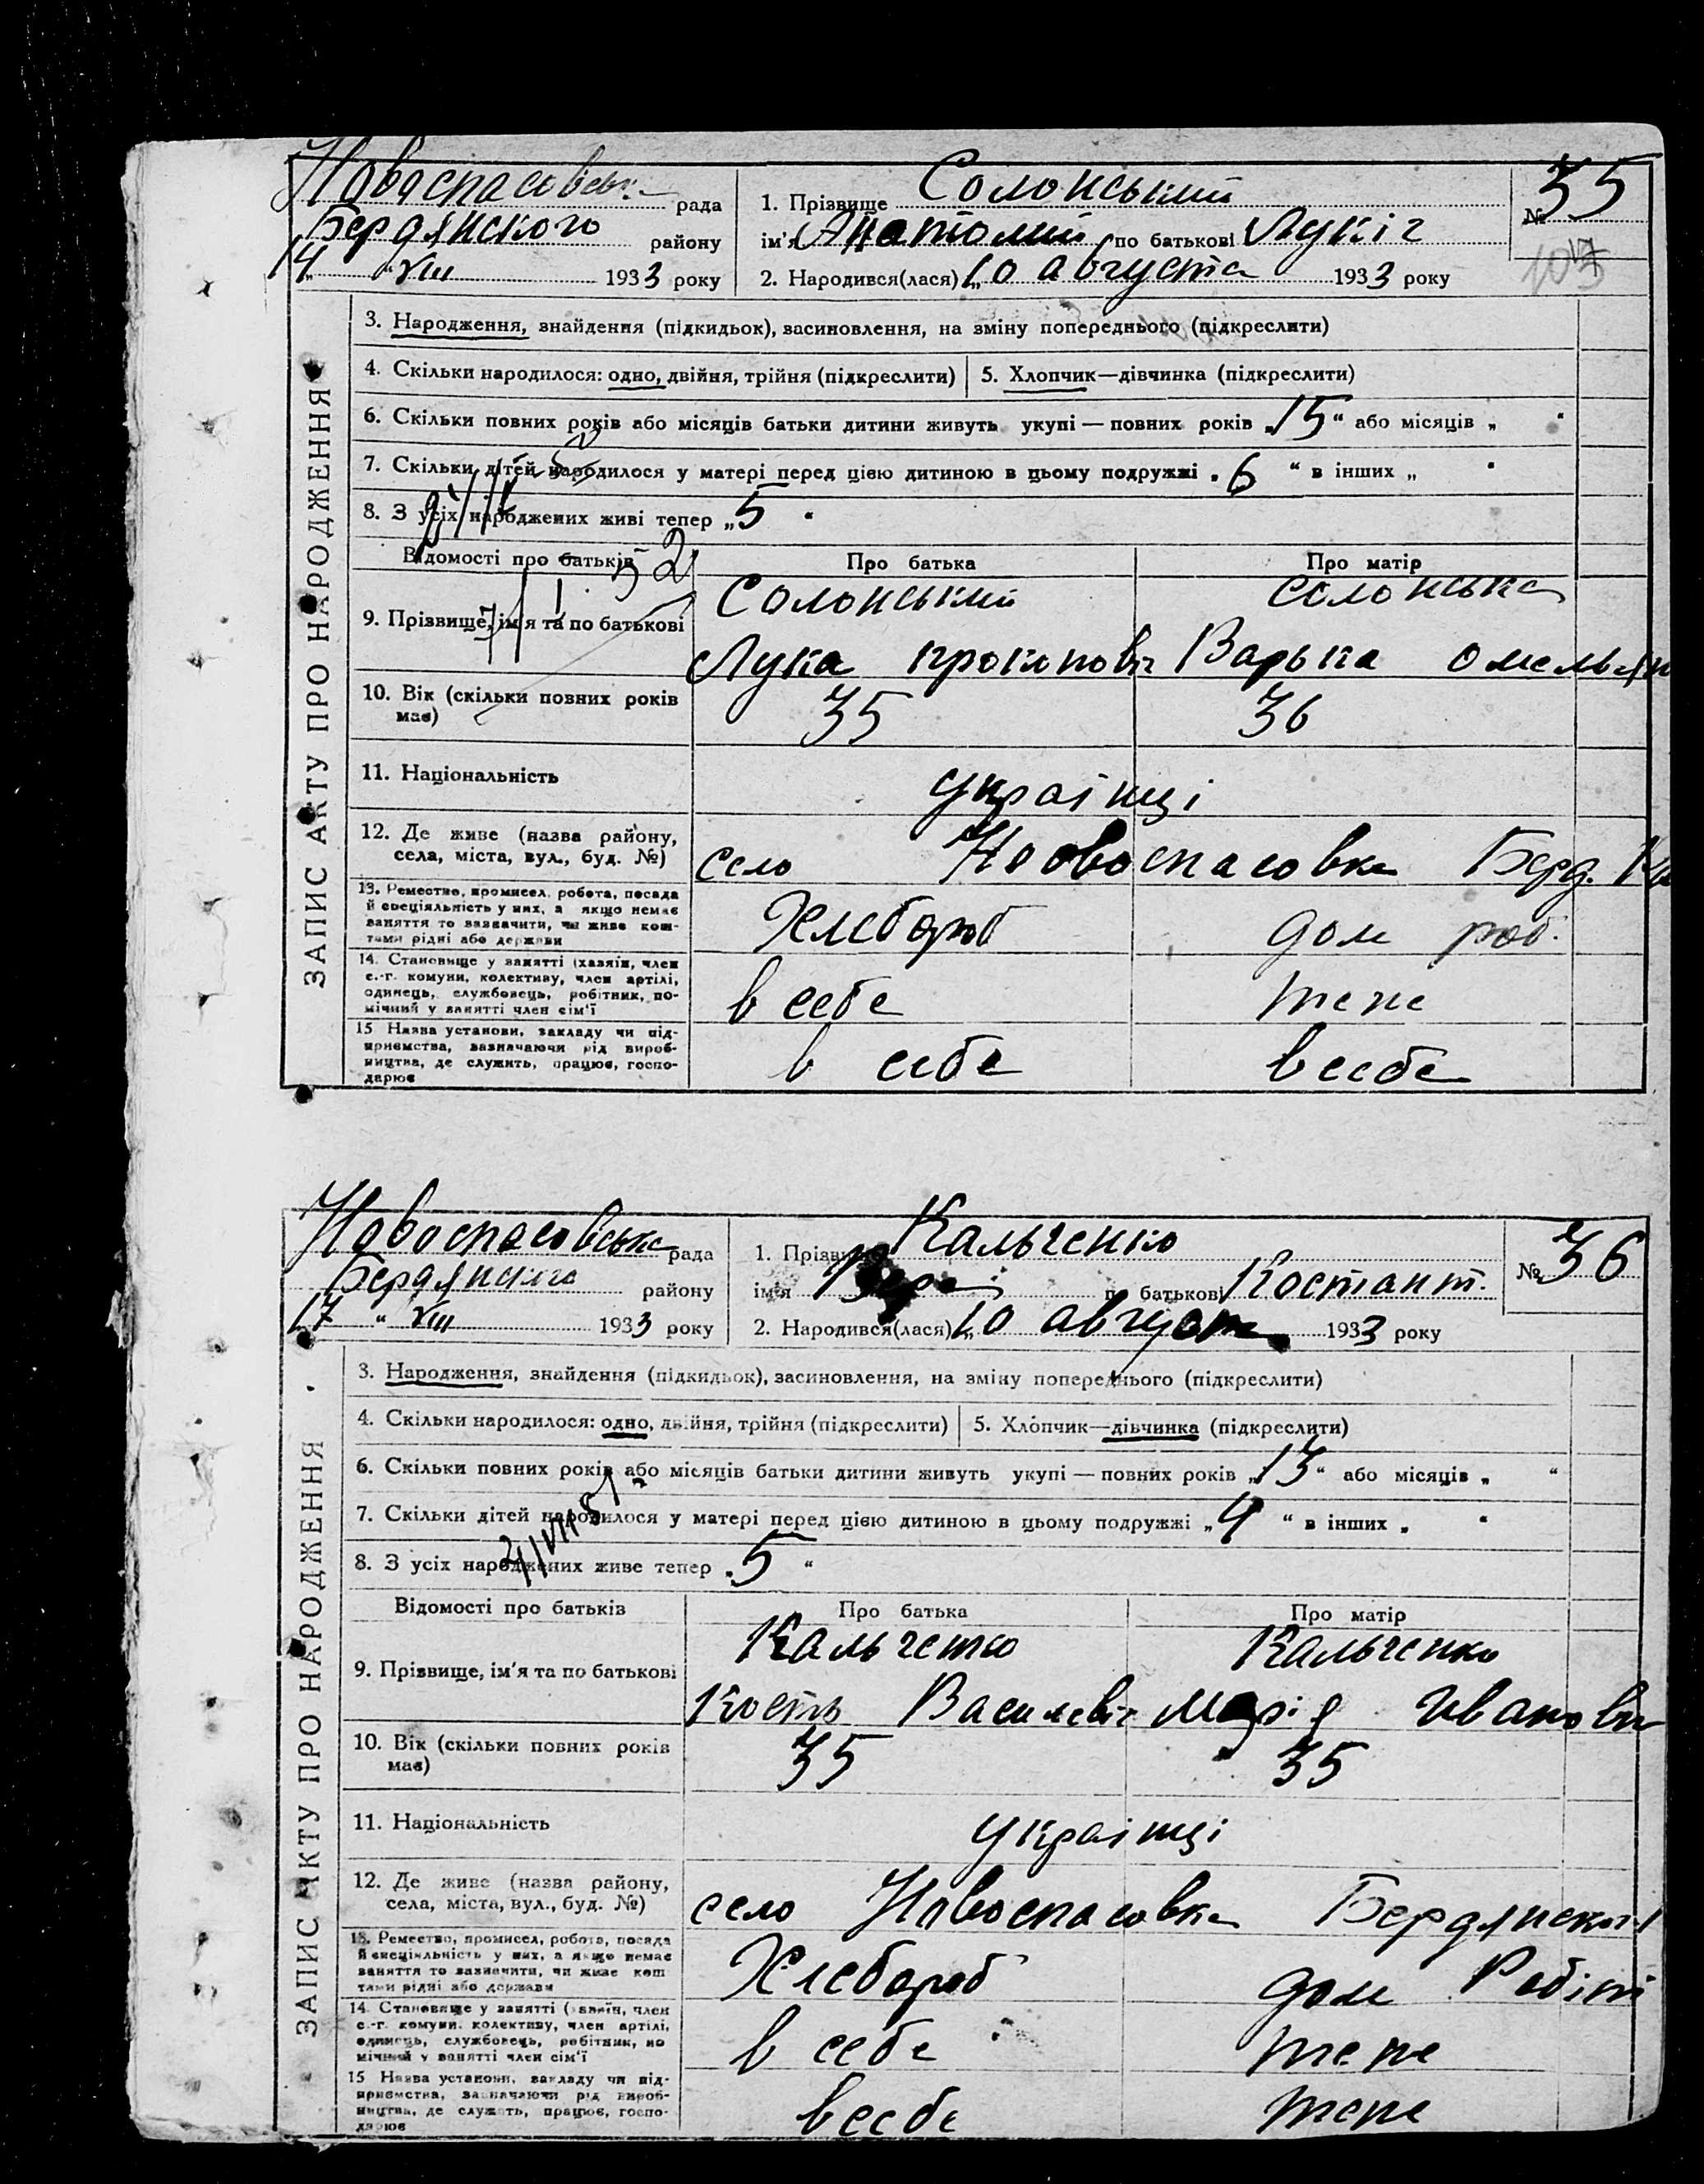 Новоспасовськ рада
Бердянского району
14 „ VIII 1933 року
1. Прізвище Солонський
ім'я Анатолий по батькові Лукіч
2. Народився(лася) „10 августа 1933 року
№ 35
ЗАПИС АКТУ ПРО НАРОДЖЕННЯ
3. Народження, знайдення (підкидьок), засиновлення, на зміну попереднього (підкреслити)
4. Скільки народилося: одно, двійня, трійня (підкреслити) 5. Хлопчик—дівчинка (підкреслити)
6. Скільки повних років або місяців батьки дитини живуть укупі — повних років „15“ або місяців „ “
7. Скільки дітей народилося у матері перед цією дитиною в цьому подружжі „6“ в інших „ “
8. З усіх народжених живі тепер „5“
Відомості про батьків Про батька Про матір
Солонський Солонська
9. Прізвище, ім'я та по батькові
Лука прокопович Варька омельян
10. Вік (скільки повних років має) 35 36
11. Національність українці
12. Де живе (назва району, села, міста, вул., буд. №) село Новоспасовка Берд.
13. Ремество, промисел, робота, посада
й спеціяльність у них, а якщо немає
заняття то зазначити, чи живе кош-
тами рідні або держави
Хлебороб дом роб.
14. Становище у занятті (хазяїн, член
с.-г. комуни, колективу, член артілі,
одинець, службовець, робітник, по-
мічний у занятті член сім'ї
в себе тепе
15 Назва установи, закладу чи під-
приємства, зазначаючи рід вироб-
ництва, де служить, працює, госпо-
дарює
в себе в себе
Новоспасовська рада
Бердянского району
17 „ VIII 1933 року
1. Прізвище Кальченко
ім'я Вера по батькові Костант.
2. Народився(лася) „10 август 1933 року
№ 36
ЗАПИС АКТУ ПРО НАРОДЖЕННЯ
3. Народження, знайдення (підкидьок), засиновлення, на зміну попереднього (підкреслити)
4. Скільки народилося: одно, двійня, трійня (підкреслити) 5. Хлопчик—дівчинка (підкреслити)
6. Скільки повних років або місяців батьки дитини живуть укупі — повних років „13“ або місяців „ “
7. Скільки дітей народилося у матері перед цією дитиною в цьому подружжі „4“ в інших „ “
8. З усіх народжених живе тепер „5“
Відомості про батьків Про батька Про матір
Кальченко Кальченко
9. Прізвище, ім'я та по батькові
Кость Василевіч Марія Иванови
10. Вік (скільки повних років має) 35 35
11. Національність українці
12. Де живе (назва району, села, міста, вул., буд. №) село Новоспасовка Бердянского
13. Ремество, промисел, робота, посада
й спеціяльність у них, а якщо немає
заняття то зазначити, чи живе кош
тами рідні або держави
Хлебороб дом Робіт
14. Становище у занятті (хазяїн, член
с.-г. комуни, колективу, член артілі,
одинець, службовець, робітник, по
мічний у занятті член сім'ї
в себе тепе
15 Назва установи, закладу чи під-
приємства, зазначаючи рід вироб-
ництва, де служить, працює, госпо-
дарює
в себе тепе